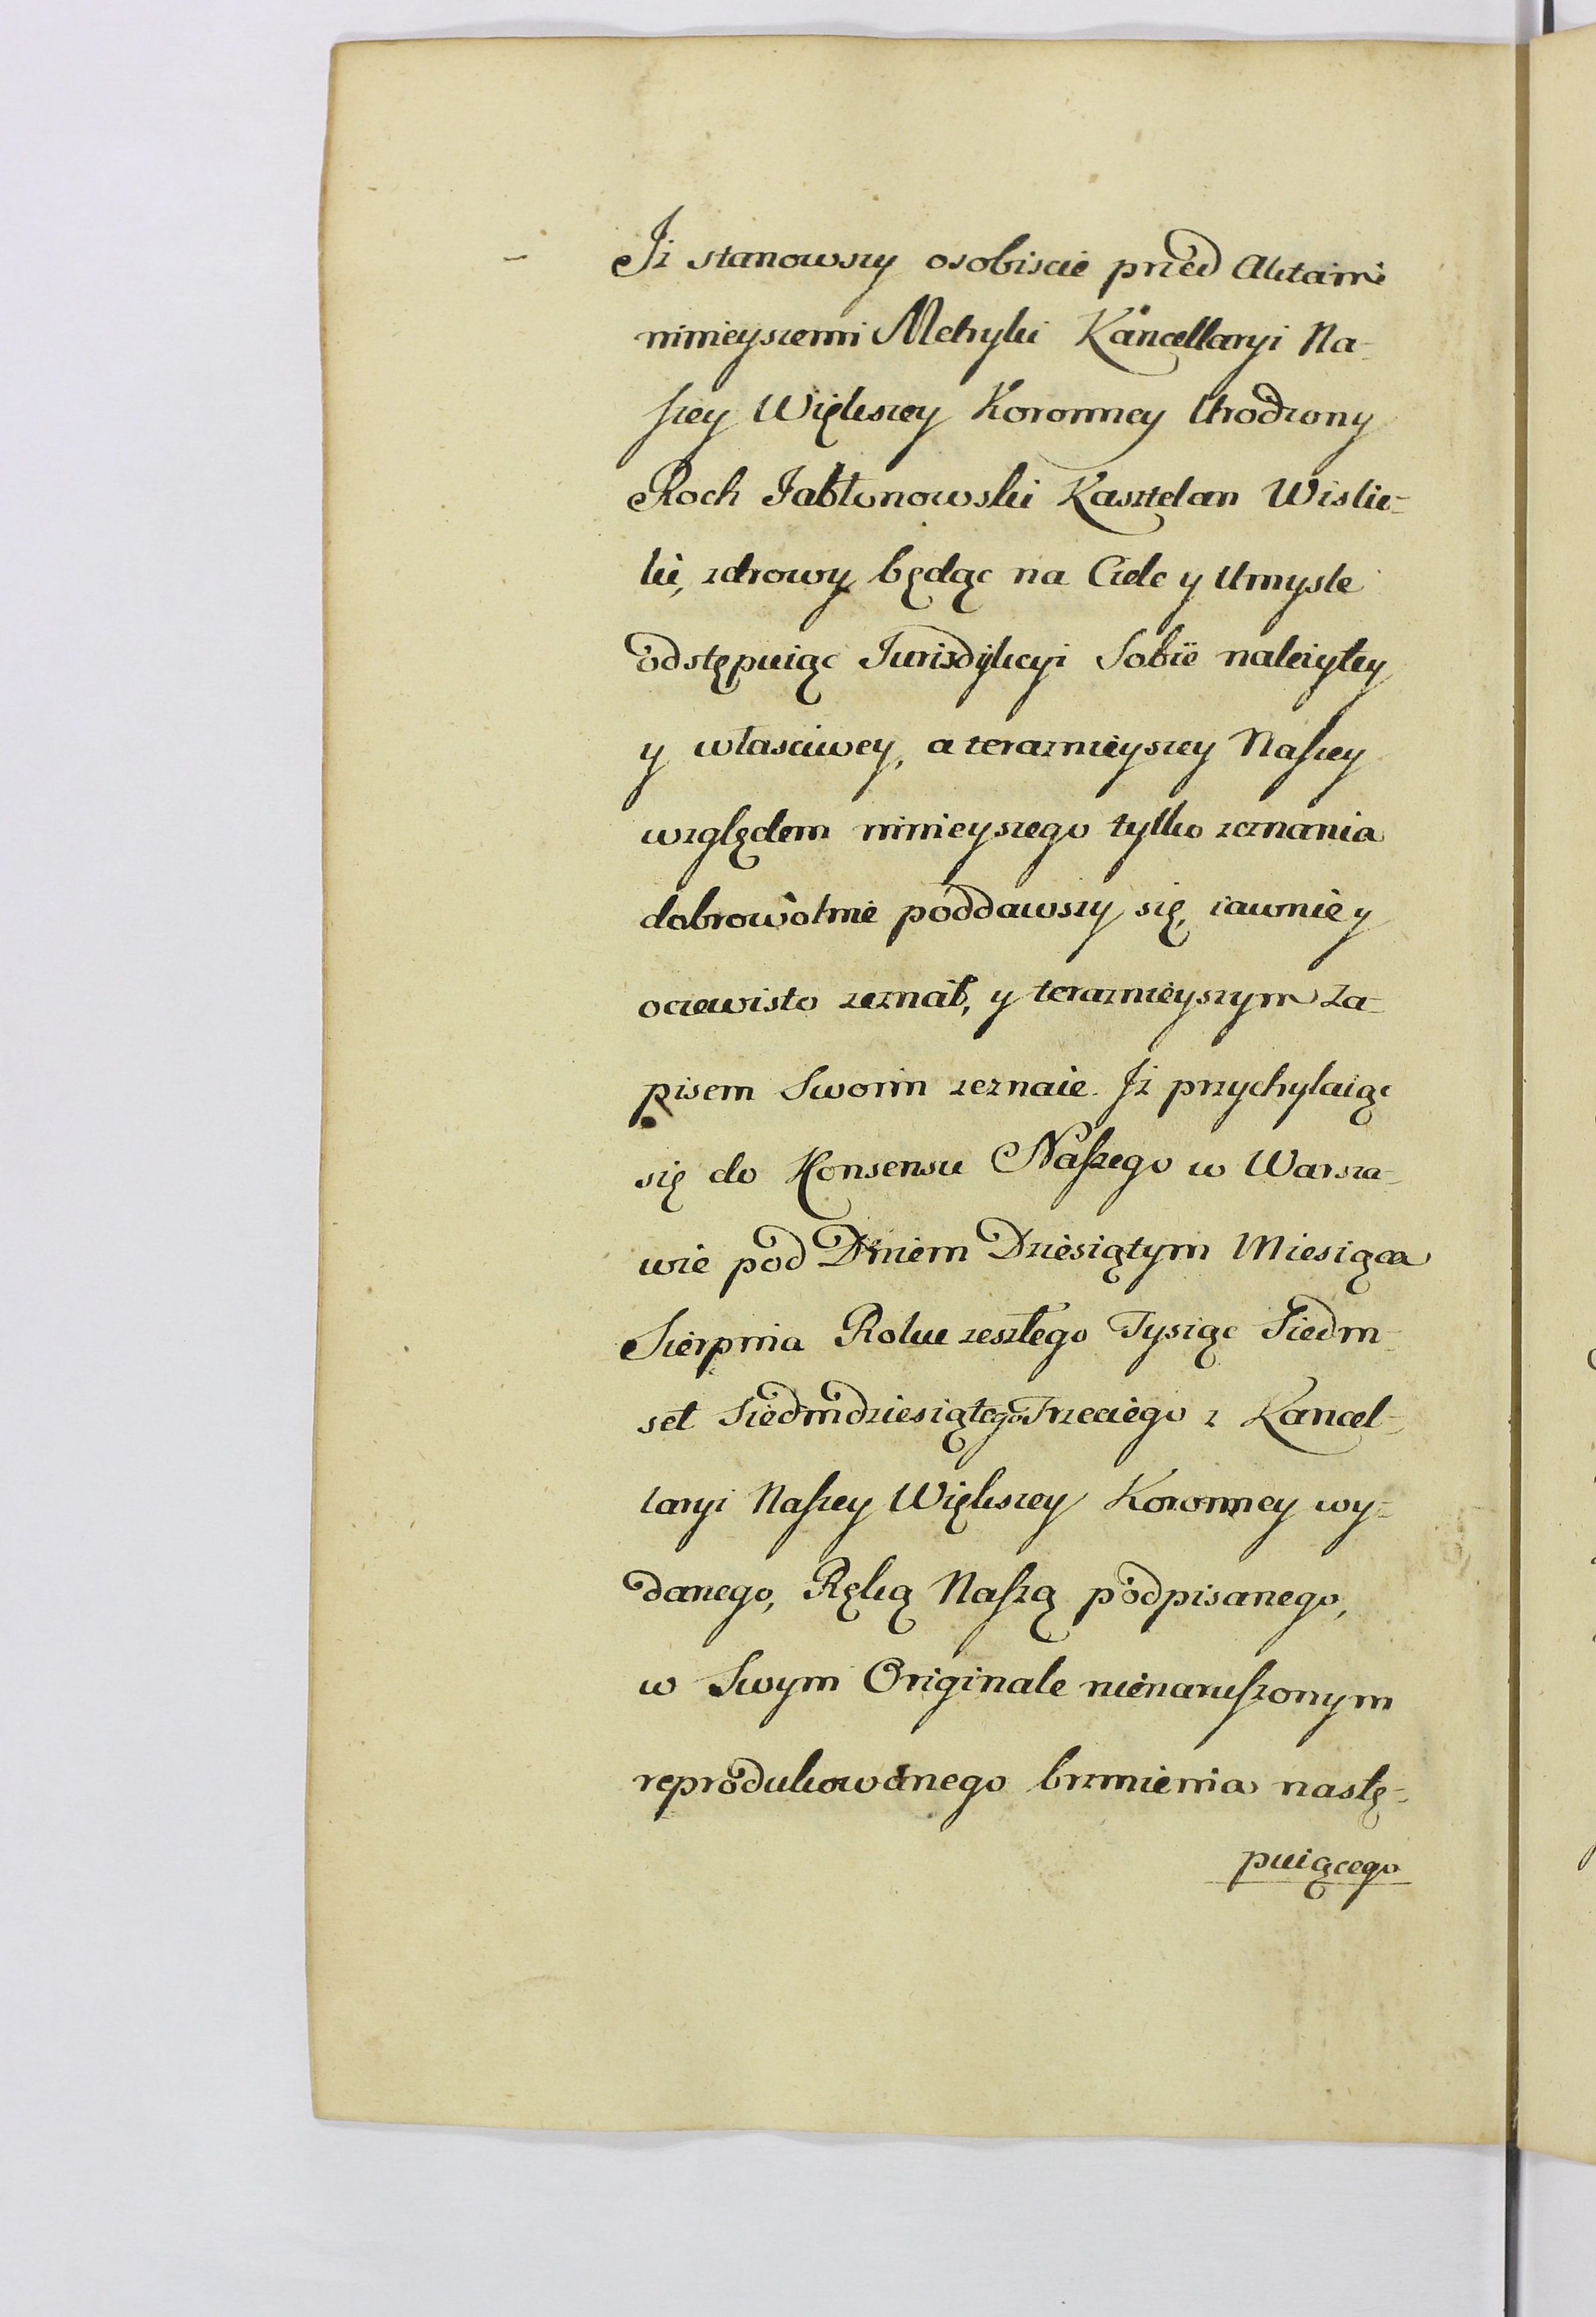 Iz stanowszy osobiscie przed Aktami
ninieyszemi Metryki Kancellaryi Na-
szey Większey Koronney Urodzony
Roch Jabłonowski Kasztelan Wislic-
ki, zdrowy będąc na Ciele y Umysle
odstępuiąc Jurisdykcyi Sobie nalezytey
y własciwey, a terazniejszey Naszey
względem ninieyszego tylko zeznania
dobrowolnie poddawszy się, iawnie y
oczewisto zeznał, y teraznieyszym Za-
pisem Swoim zeznaie. Iz przychylaiąc
się do Konsensu Naszego w Warsza-
wie pod Dniem Dziesiątym Miesiąca
Sierpnia Roku zeszłego Tysiąc Siedm-
set Siedmdziesiątego Trzeciego z Kancel-
laryi Naszey Większey Koronney wy-
danego, Ręką Naszą podpisanego,
w Swym Originale nienaruszonym
reprodukowanego brzmienia nastę-
puiącego